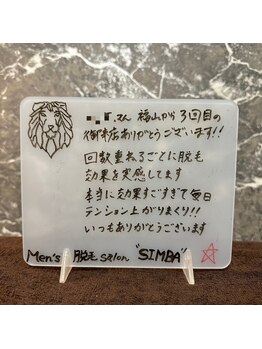 さん 福山から3回目の
御来店ありがとうございます!!
回数重ねるごとに脱毛
効果を実感してます
本当に効果すごすぎて毎日
テンション上がりまくり!!
いつもありがとうございます
Men's 脱毛 salon "SIMBA"